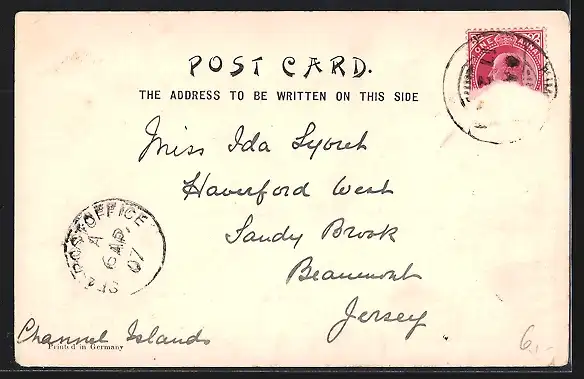 POST CARD.
THE ADDRESS TO BE WRITTEN ON THIS SIDE
ONE ANNA
Miss Ida Syvret
Haverford West
Sandy Brook
Beaumont
Jersey
SEA POST OFFICE
A
6 AP.
07
Channel Islands
Printed in Germany
6,-